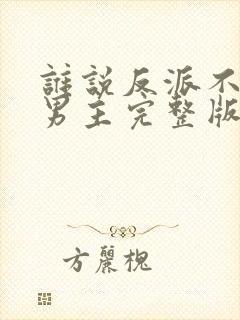 誰說反派不
男主完整版
方麗槐